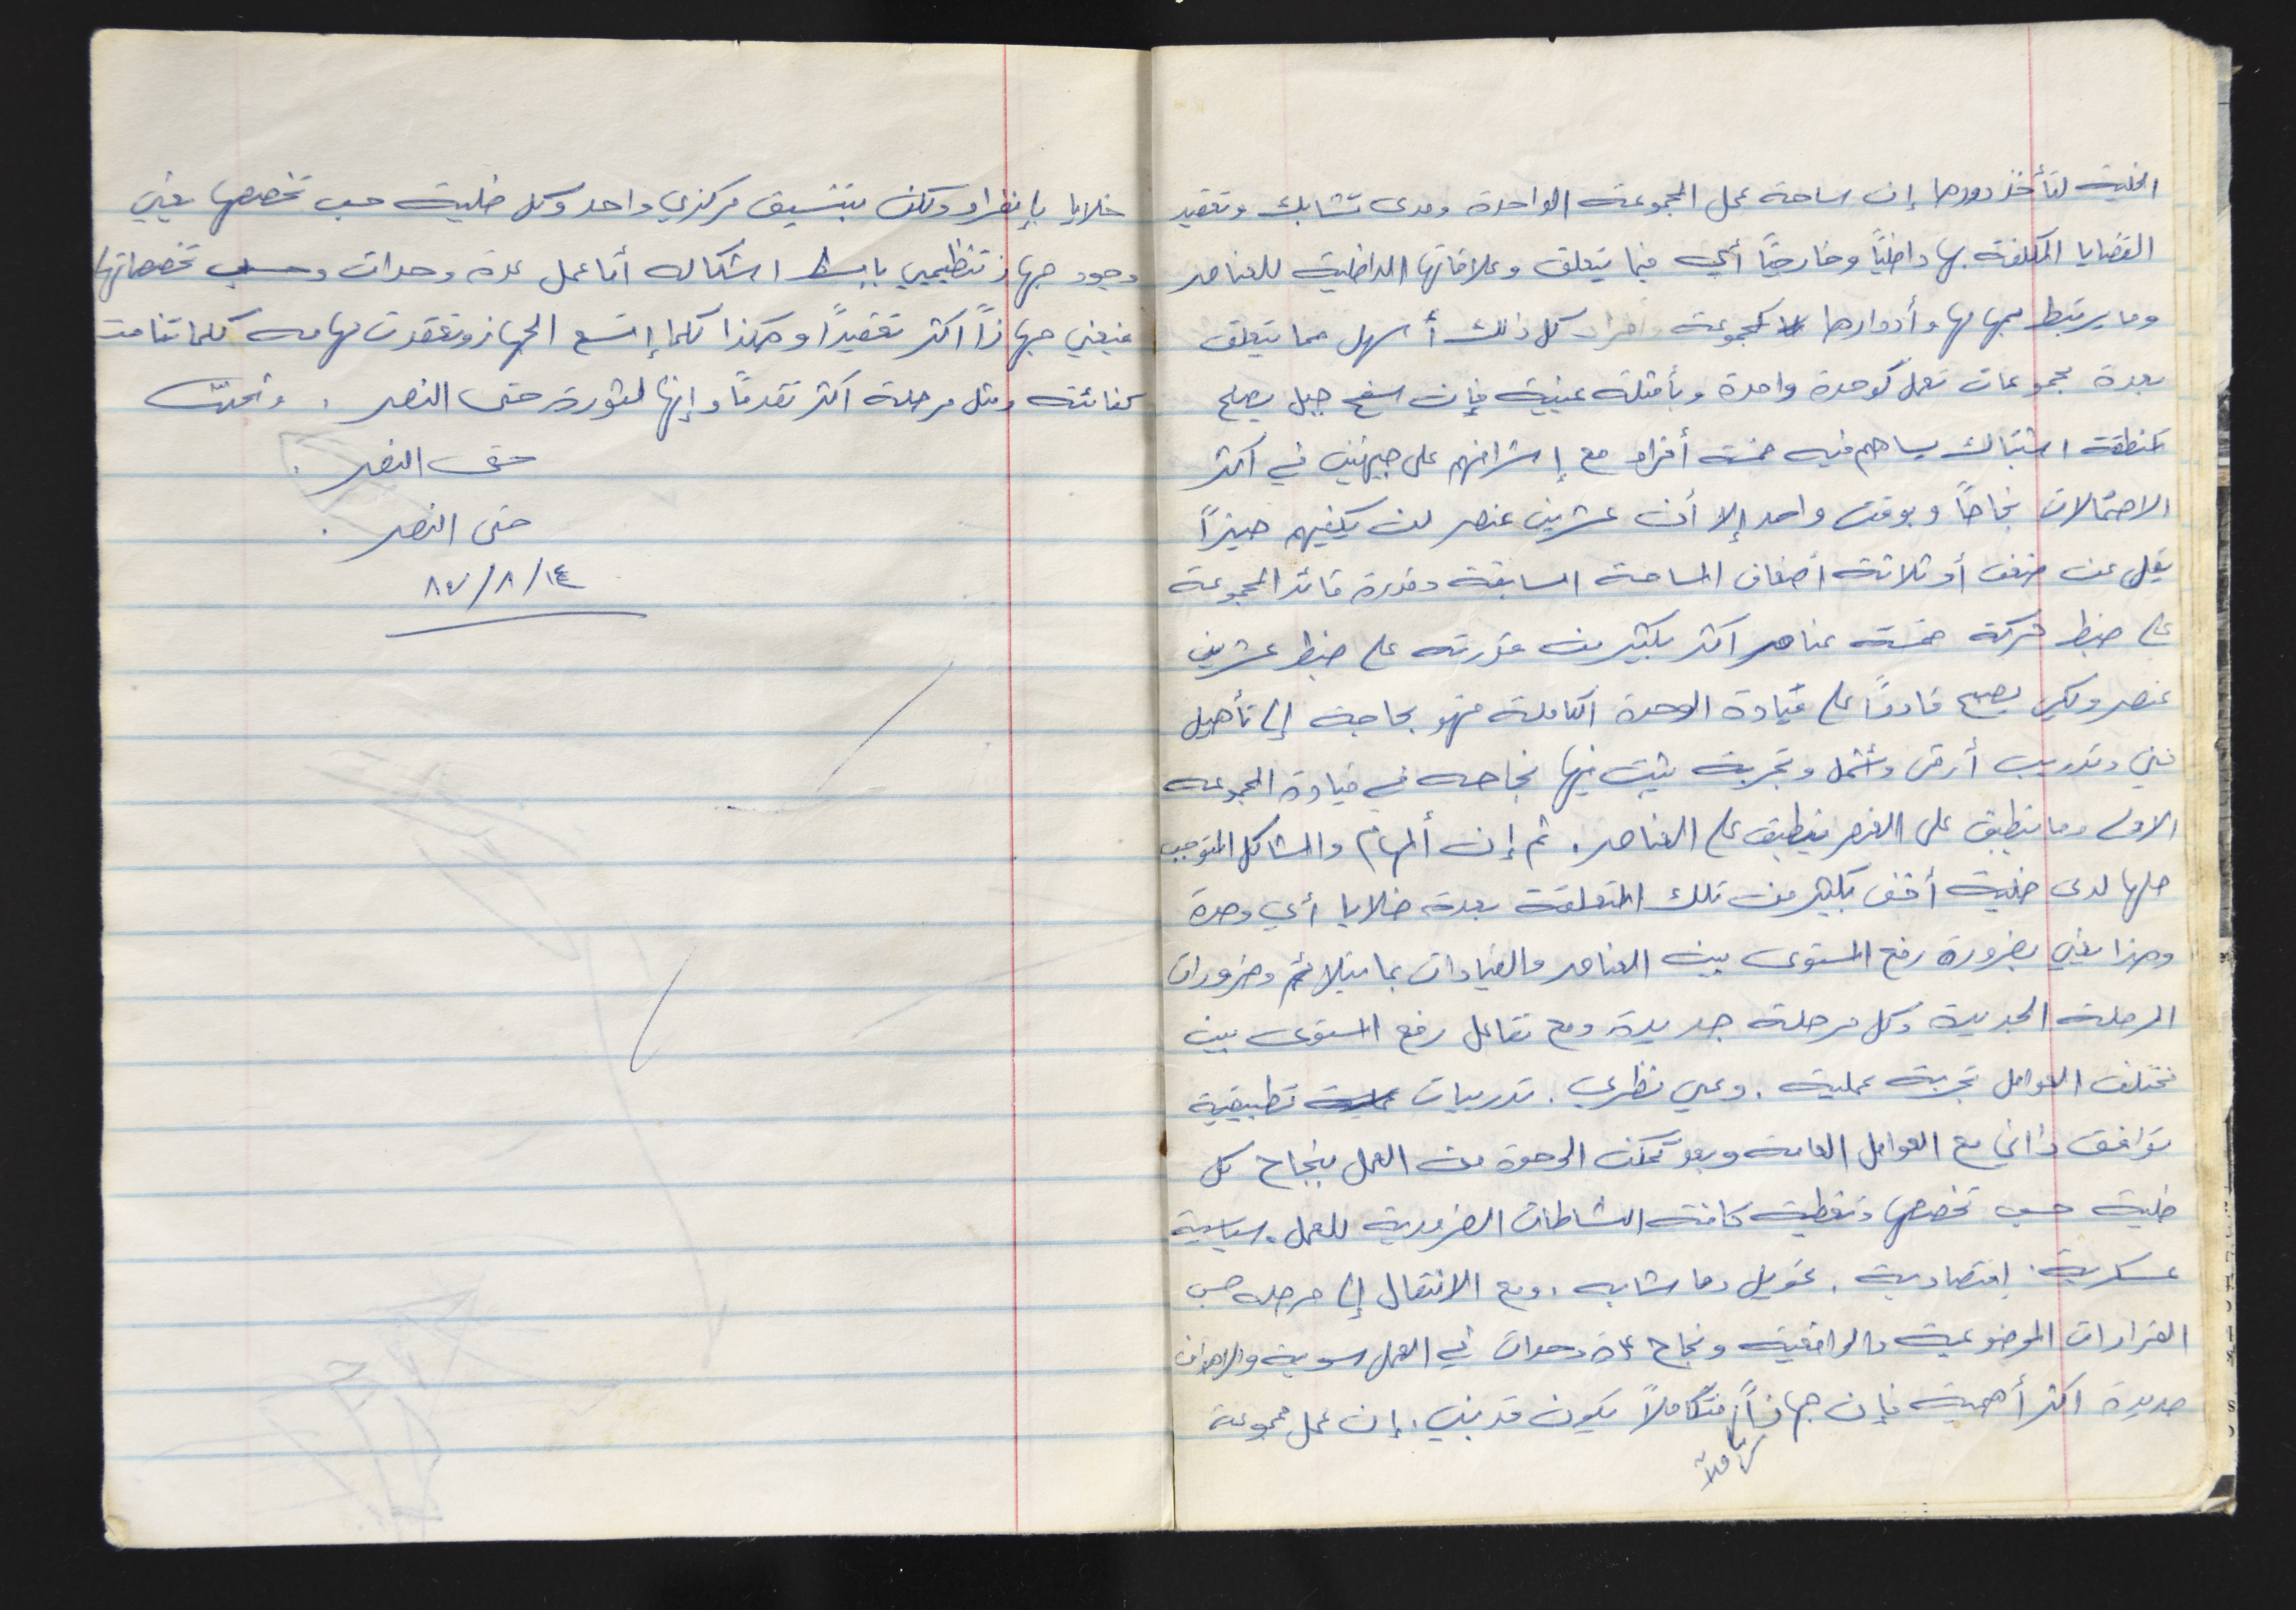 الخلية لتأخذ دورها إن ساحة عمل المجموعة الواحدة ومدى تشابك وتعقيد
القضايا المكلفة بها داخلياً وخارجياً أي فيما يتعلق وعلاقاتها الداخلية للعناصر
وما يرتبط بمهامها وأدوارها كمجموعة وأفراد كل ذلك أسهل مما يتعلق
بعدة مجموعات تعمل كوحدة واحدة وبأمثلة عينية فإن سفح جبل يصلح
كنطقة اشتباك يساهم فيه خمسة أفراد مع إشرافهم على جبهتين في أكثر
الاحتمالات نجاحاً وبوقت واحد إلا أن عشرين عنصر لن يكفيهم حيزاً
يقل عن ضعف أو ثلاثة أضعاف المساحة السابقة وقدرة قائد المجموعة
على ضبط حركة خمسة عناصر اكثر بكثير من قدرته على ضبط عشرين
عنصر ولكي يصبح قادراً على قيادة الوحدة الكاملة فهو بحاجة إلى تأهيل
فني وتدريب أرقى وأشمل وتجربة يثبت فيها نجاحه في قيادة المجموعة
الاولى وما ينطبق على العنصر ينطبق على العناصر. ثم إن ألمهام والمشاكل المتوجب
حلها لدى خلية أخف بكثير من تلك المتعلقة بعدة خلايا أي وحدة
وهذا يعني بضرورة رفع المستوى بين العناصر والقيادات بما يتلائم وضرورات
المرحلة الجديدة وكل مرحلة جديدة ومع تفاعل رفع المستوى بين
مختلف العوامل تجربة عملية. وعي نظري. تدريبات تطبيقية
توافق ذاتي مع العوامل العامة وبعد تمكن الوحدة من العمل بنجاح كل
خلية حسب تخصصها وتغطية كافة النشاطات الضرورية للعمل. سياسية
عسكرية. إقتصادية. تمويل وما شابه. ومع الانتقال إلى مرحلة حسب
القرارات الموضوعية والواقعية ونجاح عدة وحدات في العمل سوية والاهداف
جديدة اكثر أهمية فإن جهازاً متكاملاً يكون قد بني. إن عمل مجموعة
خلايا بإنفراد ولكن بتنسيق مركزي واحد وكل خلية حسب تخصصها يعني
وجود جهاز تنظيمي بابسط اشكاله أما عمل عدة وحدات وحسب تخصصاتها
فيعني جهازاً اكثر تعقيداً وهكذا كلما إتسع الجهاز وتعقدت مهامه كلما تنامت
كفائته ومثل مرحلة اكثر تقدماً وإنها لثورة حتى النصر.
حتى النصر.
حتى النصر.
٨٧/٨/١٤